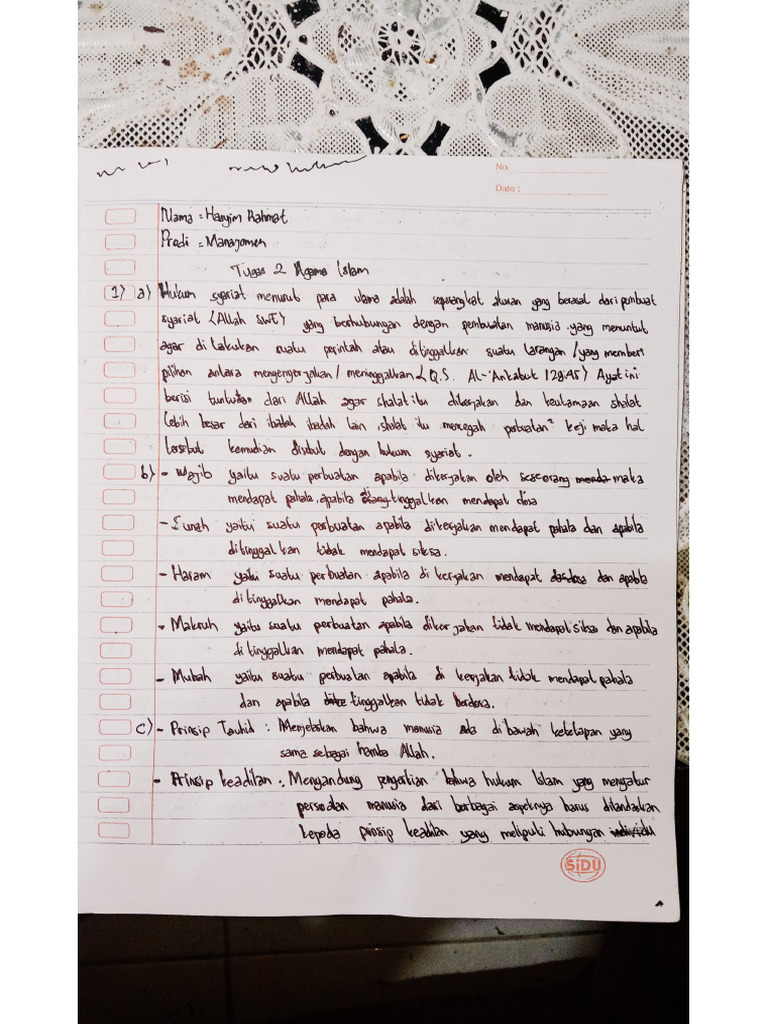 No.
Date :
Nama = Hasyim Rahmat
Prodi = Manajemen
Tugas 2 Agama Islam
1) a) Hukum syariat menurut para ulama adalah seperangkat aturan yang berasal dari pembuat
syariat (Allah SWT) yang berhubungan dengan pembuatan manusia yang menuntut
agar di lakukan suatu perintah atau ditinggalkan suatu larangan / yang memberi
pilihan antara mengerjakan / meninggalkan (Q.S. Al-'Ankabut 29:45) Ayat ini
berisi tuntutan dari Allah agar shalat itu dikerjakan dan keutamaan shalat
lebih besar dari ibadah ibadah lain shalat itu mencegah perbuatan² keji maka hal
tersebut kemudian disebut dengan hukum syariat.
b) - Wajib yaitu suatu perbuatan apabila dikerjakan oleh seseorang maka
mendapat pahala, apabila ditinggalkan mendapat dosa
- Sunah yaitu suatu perbuatan apabila dikerjakan mendapat pahala dan apabila
ditinggalkan tidak mendapat siksa.
- Haram yaitu suatu perbuatan apabila di kerjakan mendapat dosa dan apabila
ditinggalkan mendapat pahala.
- Makruh yaitu suatu perbuatan apabila dikerjakan tidak mendapat siksa dan apabila
ditinggalkan mendapat pahala.
- Mubah yaitu suatu perbuatan apabila di kerjakan tidak mendapat pahala
dan apabila tinggalkan tidak berdosa.
c) - Prinsip Tauhid : Menjelaskan bahwa manusia ada dibawah ketetapan yang
sama sebagai hamba Allah.
- Prinsip keadilan : Mengandung pengertian bahwa hukum Islam yang mengatur
persoalan manusia dari berbagai aspeknya harus dilandaskan
kepada prinsip keadilan yang meliputi hubungan
SiDU